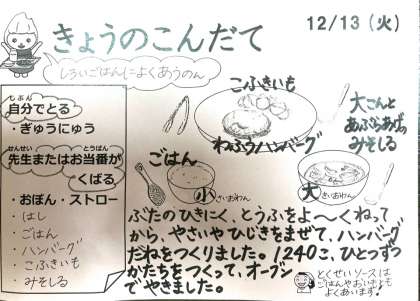 きょうのこんだて
12/13(火)
しろいごはんによくあうのん
自分でとる
じぶん
・ぎゅうにゅう
先生またはお当番が
せんせい とうばん
くばる
・おぼん・ストロー
・はし
・ごはん
・ハンバーグ
・こふきいも
・みそしる
こふきいも
わふうハンバーグ
大こんと
あぶらあげの
みそしる
ごはん
小
さいおわん
大
さいおわん
ぶたのひきにく、とうふをよ〜くねって
から、やさいやひじきをまぜて、ハンバーグ
だねをつくりました。1240こ、ひとつずつ
かたちをつくって、オーブン
でやきました。
とくせいソースは
ごはんやおいもとも
よくあいます!